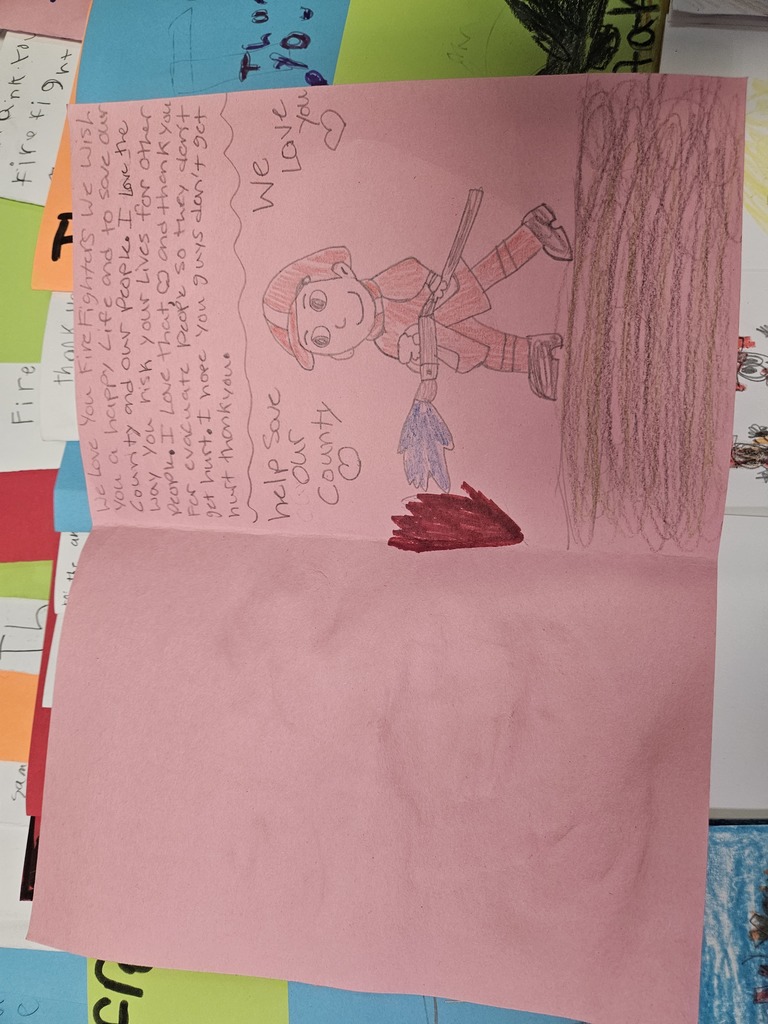 We Love You FireFighters We Wish
You a happy Life and to save our
County and our People. I Love the
way You risk your Lives for other
People. I Love that ∞ and thank you
For evacuate People so they don't
get hurt. I hope You guys don't get
hurt thank you.
help save
our
county
We
Love
you
Thank
you.
Fire
thank